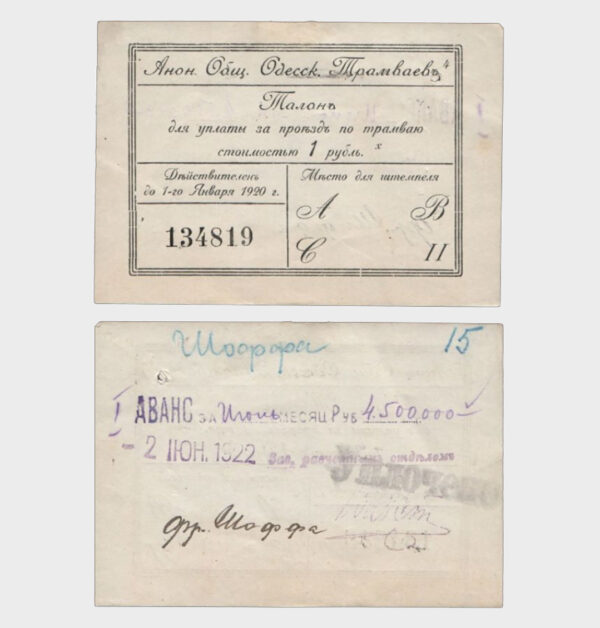 Анон. Общ. Одесск. Трамваевъ
Талонъ
для уплаты за проѣздъ по трамваю
стоимостью 1 рубль.
Дѣйствителенъ
до 1-го Января 1920 г.
Мѣсто для штемпеля
134819
A B
C II
Шоффа 15
I АВАНС за Июнь месяц Руб 4.500.000
- 2 IЮН. 1922 Зав. расчетным отделом
Уплочено
фр. Шоффа